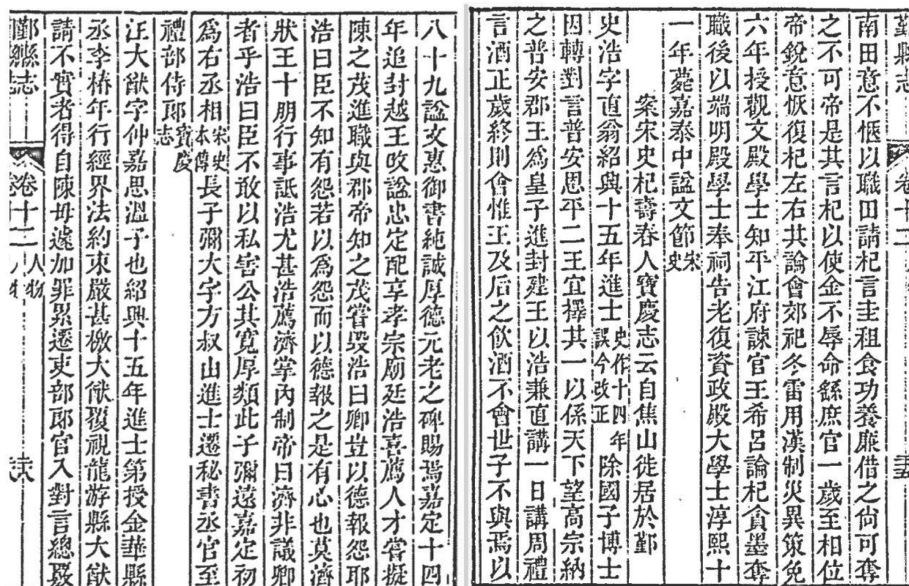 鄞縣志 卷十二
南田意不愜以職田請杞言圭租食功養廉借之尚可奪
之不可帝是其言杞以使金不辱命繇庶官一歲至相位
帝銳意恢復杞左右其論會郊祀冬雷用漢制災異策免
六年授觀文殿學士知平江府諫官王希呂論杞貪墨奪
職後以端明殿學士奉祠告老復資政殿大學士淳熙十
一年薨嘉泰中諡文節宋史
案宋史杞壽春人寶慶志云自焦山徙居於鄞
史浩字直翁紹興十五年進士史作十四年誤今改正除國子博士
因轉對言普安恩平二王宜擇其一以係天下望高宗納
之普安郡王爲皇子進封建王以浩兼直講一日講周禮
言酒正歲終則會惟王及后之飲酒不會世子不與焉以
八十九諡文惠御書純誠厚德元老之碑賜焉嘉定十四
年追封越王改諡忠定配享孝宗廟廷浩喜薦人才嘗擬
陳之茂進職與郡帝知之茂嘗毀浩曰卿豈以德報怨耶
浩曰臣不知有怨若以爲怨而以德報之是有心也莫濟
狀王十朋行事詆浩尤甚浩薦濟掌內制帝曰濟非議卿
者乎浩曰臣不敢以私害公其寬厚類此子彌遠嘉定初
爲右丞相宋史本傳長子彌大字方叔山進士遷秘書丞官至
禮部侍郎寶慶志
汪大猷字仲嘉思溫子也紹興十五年進士第授金華縣
丞李椿年行經界法約束嚴甚檄大猷覆視龍游縣大猷
請不實者得自陳毋遽加罪累遷吏部郎官入對言總覈
鄞縣志 卷十二 人物